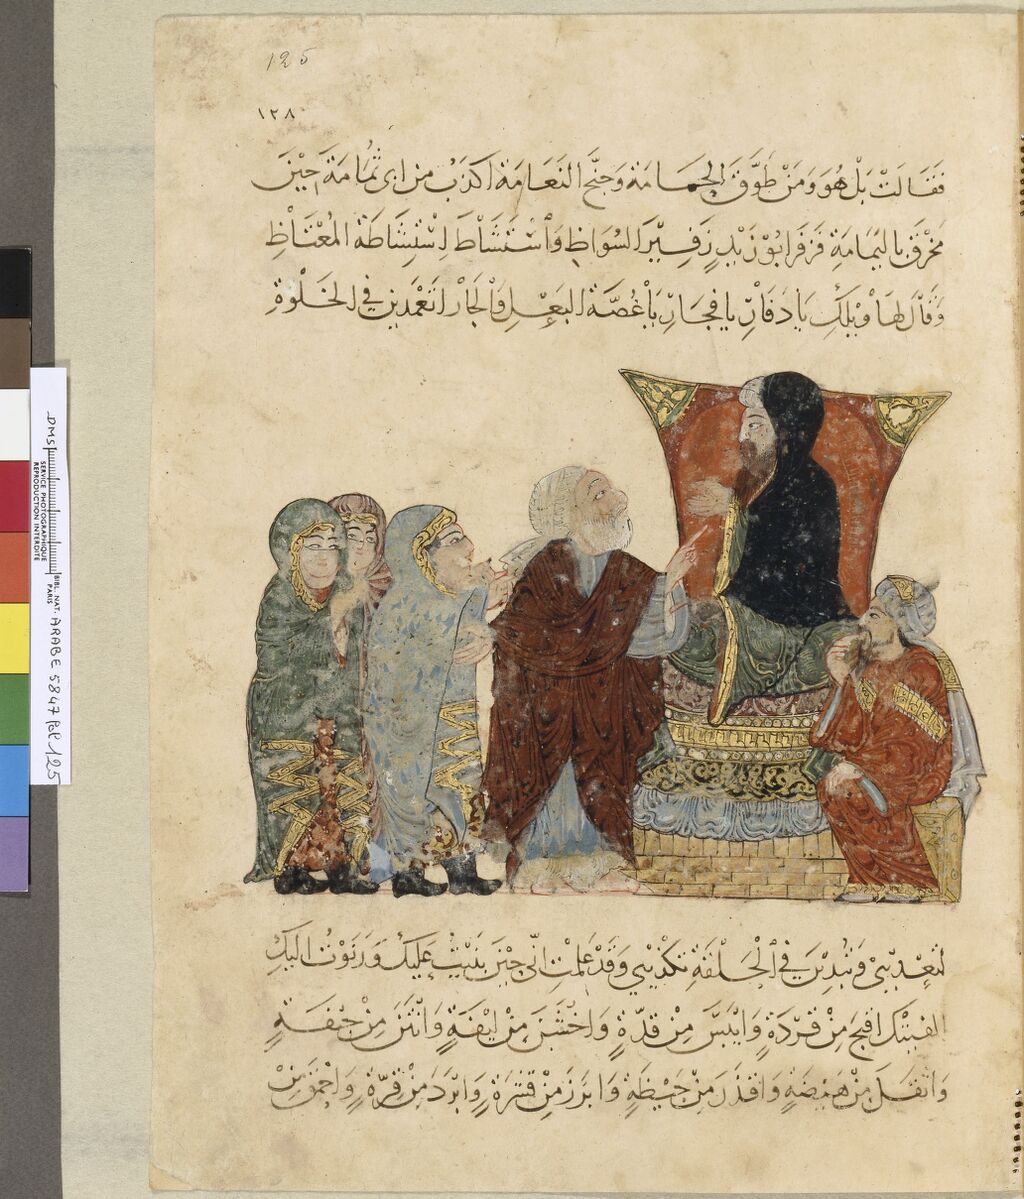 125
١٢٨
فقالت بل هو ومن طوق الحمامة وجنح النعامة اكذب من ابى ثمامة حين
مخرق باليمامة فزفر ابو زيد زفير الشواظ واستشاط استشاطة المغتاظ
وقال لها ويلك يا دفار يا فجار يا غصة البعل والجار اتعمدين في الخلوة
لتعذيبي وتبدين في الحلقة تكذيبي وقد علمت اني حين بنيت عليك ودنوت اليك
الفيتك اقبح من قردة وايبس من قدة واخشن من ليفة وانتن من جيفة
واثقل من هيضة واقذر من حيظة وابرز من قشرة وابرد من قرة واحمق من
DMS
SERVICE PHOTOGRAPHIQUE
REPRODUCTION INTERDITE
BIBL. NAT.
PARIS
ARABE 5847 fol. 125